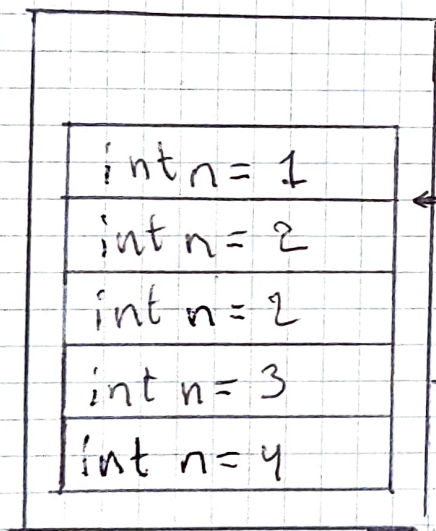 int n = 1
int n = 2
int n = 2
int n = 3
int n = 4